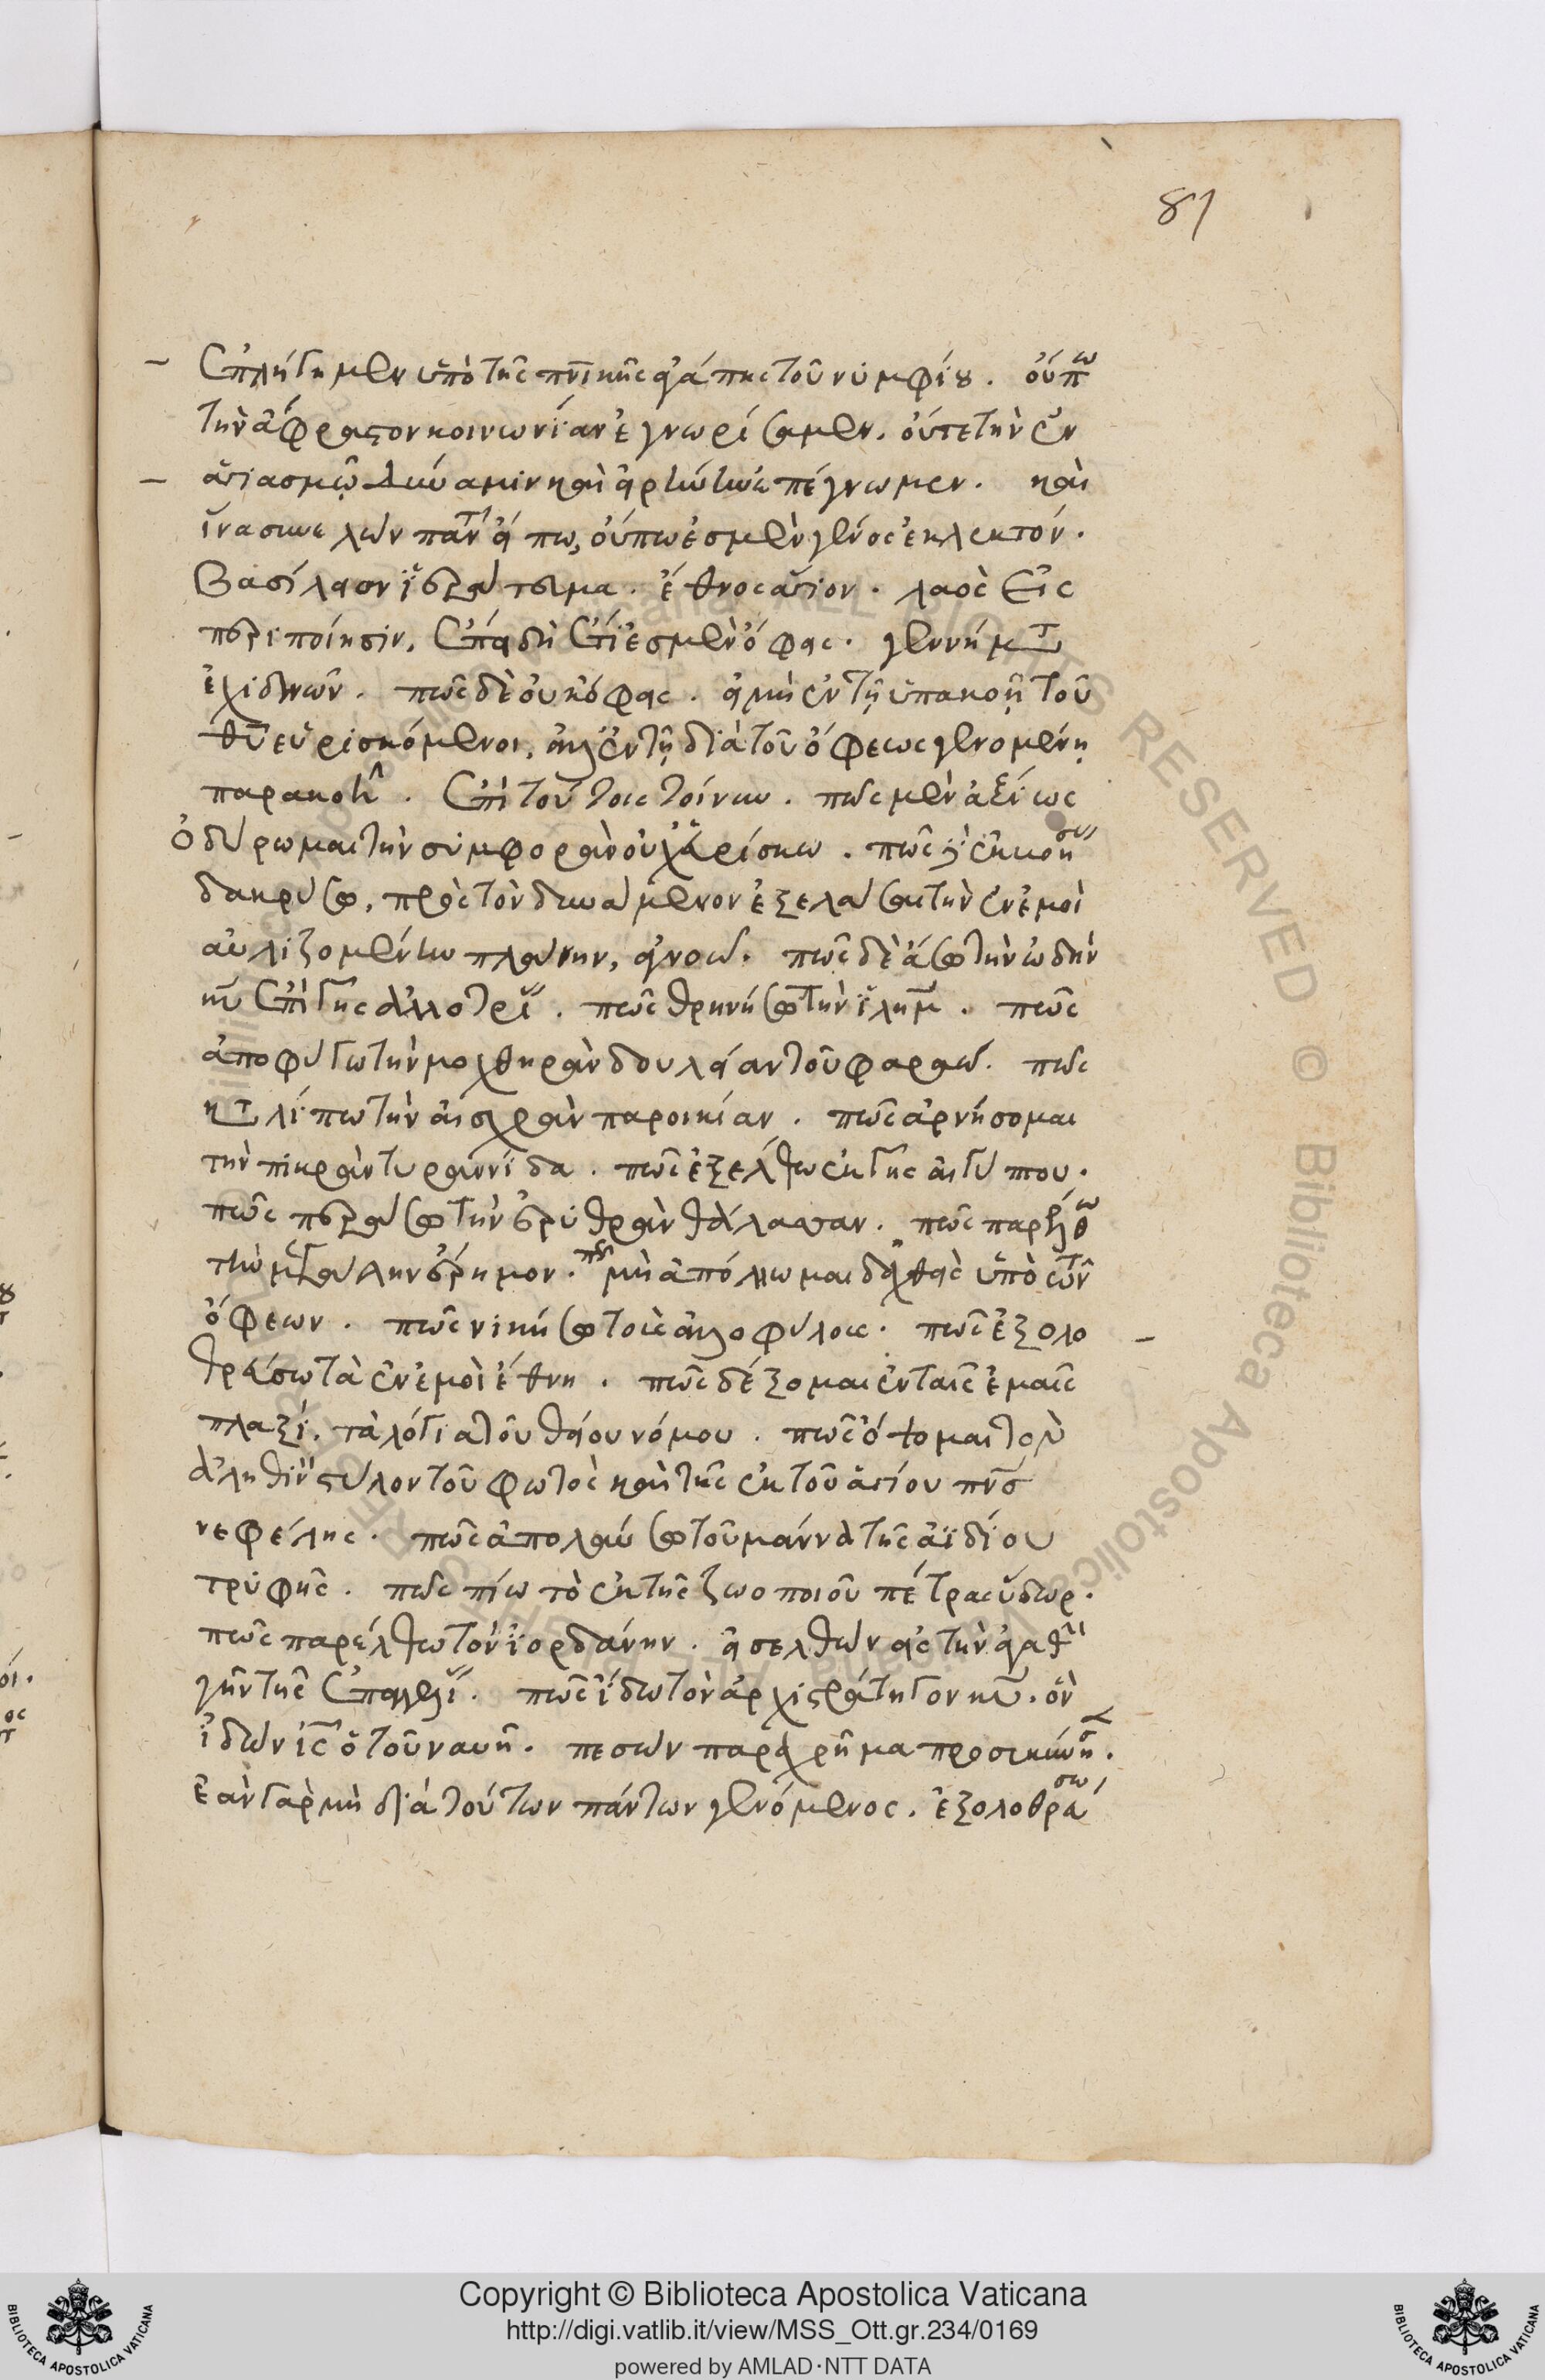 81
ἐπλήγημεν ὑπὸ τῆς πνικῆς ἀγάπης τοῦ νυμφίου. οὔπω
τὴν ἄφραστον κοινωνίαν ἐγνωρίσαμεν. οὔτε τὴν ἐν
ἁγιασμῷ δύναμιν καὶ ἀρετὴν ἐπέγνωμεν. καὶ
ἵνα συνελὼν πάντα εἴπω, οὔπω ἐσμὲν γένος ἐκλεκτόν.
βασίλειον ἱεράτευμα. ἔθνος ἅγιον. λαὸς εἰς
περιποίησιν. ἐπειδὴ ἔτι ἐσμὲν ὄφεις. γεννήματα
ἐχιδνῶν. πῶς δὲ οὐκ ὄφεις. οἱ μὴ ἐν τῇ ὑπακοῇ τοῦ
θῦ εὑρισκόμενοι, ἀλλ' ἐν τῇ διὰ τοῦ ὄφεως γενομένῃ
παρακοῇ. ἐπὶ τούτοις τοίνυν. πῶς μὲν ἀξίως
ὀδύρωμαι τὴν συμφορὰν οὐχ εὑρίσκω. πῶς
δακρύσω, πρὸς τὸν δυνάμενον ἐξελάσαι τὴν ἐν ἐμοὶ
αὐλιζομένην πλάνην, ἀγνοῶ. πῶς δὲ ᾄσω τὴν ᾠδὴν
κυ ἐπὶ γῆς ἀλλοτρίας. πῶς θρηνήσω τὴν ἱλημ. πῶς
ἀποφύγω τὴν μοχθηρὰν δουλείαν τοῦ φαραώ. πῶς
καταλίπω τὴν αἰσχρὰν παροικίαν. πῶς ἀρνήσομαι
τὴν πικρὰν τυραννίδα. πῶς ἐξέλθω ἐκ γῆς αἰγύπτου.
πῶς περάσω τὴν ἐρυθρὰν θάλασσαν. πῶς παρέλθω
τὴν μεγάλην ἔρημον. πῶς μὴ ἀπόλλωμαι δηχθεὶς ὑπὸ τῶν
ὄφεων. πῶς νικήσω τοὺς ἀλλοφύλους. πῶς ἐξολο
θρεύσω τὰ ἐν ἐμοὶ ἔθνη. πῶς δέξομαι ἐν ταῖς ἐμαῖς
πλαξί. τὰ λόγια τοῦ θείου νόμου. πῶς ὄψομαι τὸν
ἀληθινὸν στύλον τοῦ φωτὸς καὶ τῆς ἐκ τοῦ ἁγίου πνσ
νεφέλης. πῶς ἀπολαύσω τοῦ μάννα τῆς ἀϊδίου
τρυφῆς. πῶς πίω τὸ ἐκ τῆς ζωοποιοῦ πέτρας ὕδωρ.
πῶς παρέλθω τὸν ἰορδάνην. εἰσελθὼν εἰς τὴν ἀγαθὴν
γῆν τῆς ἐπαγγελίας. πῶς ἴδω τὸν ἀρχιστράτηγον κυ. ὃν
ἰδὼν ις ὁ τοῦ ναυῆ. πεσὼν παραχρῆμα προσεκύνησεν.
ἐὰν γὰρ μὴ διὰ τούτων πάντων γενόμενος. ἐξολοθρεύσω
Copyright © Biblioteca Apostolica Vaticana
http://digi.vatlib.it/view/MSS_Ott.gr.234/0169
powered by AMLAD·NTT DATA